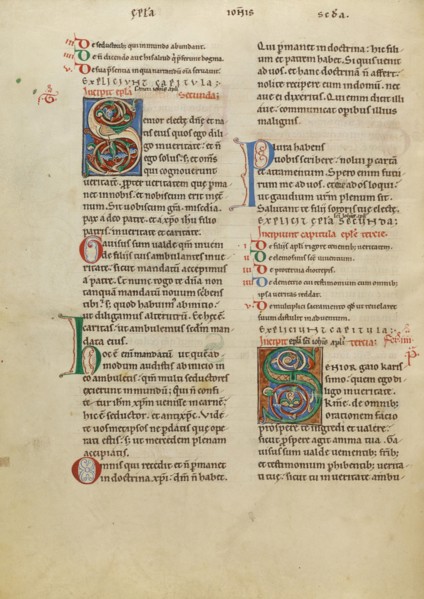 EPLA IOHIS SCDA.
iii De seductorib; qui in mundo abundant.
iiii De n dicendo aue his aliud
v. De sua
EXPLICIUNT CAPITULA
Incipit epla Secunda:
Senior electę dnę et na
tis eius quos ego dili
go in ueritate. et n
ego solus. s; et oms
qui cognouerunt
ueritatē. propter ueritatem que pma
net in nobis. et nobiscum erit in ęter
num. Sit uobiscum gra. misedia.
pax a deo patre. et a xpo ihu filio
patris. in ueritate et caritate.
Gauisus sum ualde qm inueni
de filiis tuis ambulantes in ue
ritate. sicut mandatū accepimus
a patre. Et nunc rogo te dna. non
tanquā mandatū nouum scribens
tibi. s; quod habuim ab inicio.
ut diligamus alterutrū. Et hęc ē
caritas. ut ambulemus scdm man
data eius.
Hoc ē enim mandatū ut quē ad
modum audistis ab inicio in
eo ambuletis. qm multi seductores
exierunt in mundū. qui n confiten
tur ihm xpm uenisse in carnē.
hic ē seductor. et antixpc. Vide
te uosmetipsos ne pdatis que ope
rati estis. s; ut mercedem plenam
accipiatis.
Omnis qui recedit et n pmanet
in doctrina xpi. dm n habet.
Qui pmanet in doctrina. hic fili
um et patrem habet. Si quis uenit
ad uos. et hanc doctrinā n affert.
nolite recipere eum in domū. nec
aue ei dixeritis. Qui enim dicit illi
aue. communicat opibus illius
malignis.
Plura habens
uobis scribere. nolui p cartā
et atramentum. Spero enim futu
rum me ad uos. et os ad os loqui.
ut gaudium urm plenum sit.
Salutant te filii sororis tue electę.
EXPLICIT EPLA SECUNDA:
Incipiunt capitula eple tercie.
i De filiis apli rigore ueritatis
ii De demosius sci
iii De
iiii De demetrio cui testimonium cum omnib;
ipsa ueritas reddat.
v De
suum distulit in aduentum.
EXPLICIUNT CAPITULA:
Incipit epla sci iohis apli tercia:
Senior. gaio karis
simo. quem ego di
ligo in ueritate.
Kme. de omnib;
orationem facio
prospere te ingredi et ualere.
sicut prospere agit anima tua. Ga
uisus sum ualde uenientib; frib;
et testimonium phibentib; uerita
ti tuę. sicut tu in ueritate ambu